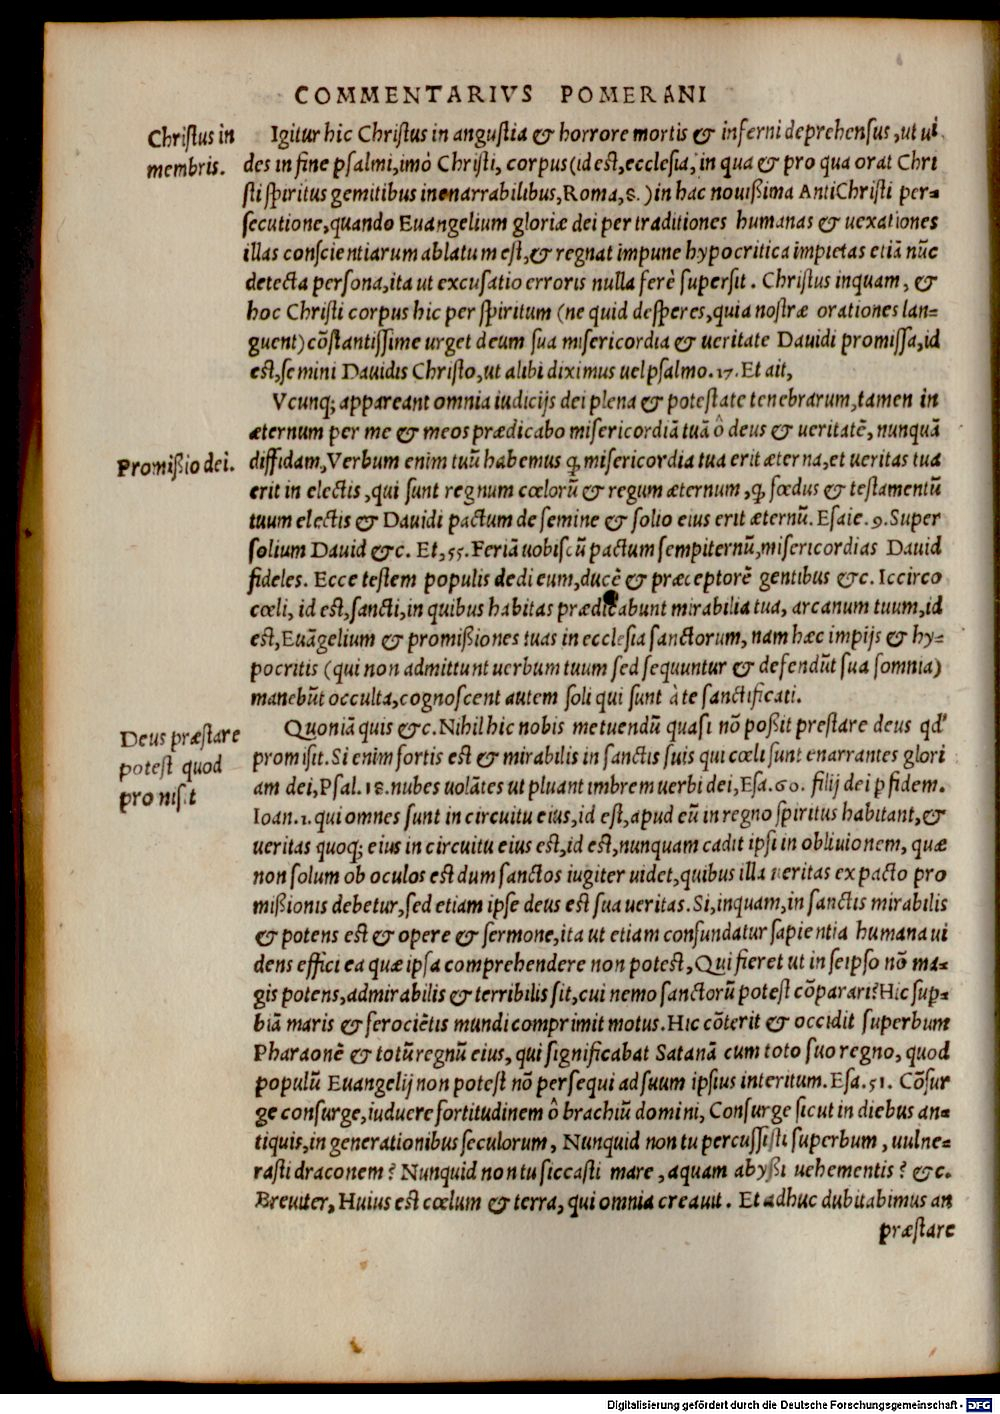 COMMENTARIVS POMERANI
Christus in
membris.
Igitur hic Christus in angustia & horrore mortis & inferni deprehensus, ut ui
des in fine psalmi, imò Christi, corpus (id est, ecclesia, in qua & pro qua orat Chri
sti spiritus gemitibus inenarrabilibus, Roma, 8.) in hac nouißima AntiChristi per-
secutione, quando Euangelium gloriæ dei per traditiones humanas & uexationes
illas conscientiarum ablatum est, & regnat impune hypocritica impietas etiā nūc
detecta persona, ita ut excusatio erroris nulla ferè supersit. Christus inquam, &
hoc Christi corpus hic per spiritum (ne quid desperes, quia nostræ orationes lan-
guent) cōstantissime urget deum sua misericordia & ueritate Dauidi promissa, id
est, semini Dauidis Christo, ut alibi diximus uel psalmo. 17. Et ait,
Vcunq; appareant omnia iudicijs dei plena & potestate tenebrarum, tamen in
æternum per me & meos prædicabo misericordiā tuā ô deus & ueritatē, nunquā
Promißio dei.
diffidam, Verbum enim tuū habemus ꝙ misericordia tua erit æterna, et ueritas tua
erit in electis, qui sunt regnum cœlorū & regum æternum, ꝙ fœdus & testamentū
tuum electis & Dauidi pactum de semine & solio eius erit æternū. Esaie. 9. Super
solium Dauid &c. Et, 55. Feriā uobiscū pactum sempiternū, misericordias Dauid
fideles. Ecce testem populis dedi eum, ducē & præceptorē gentibus &c. Iccirco
cœli, id est, sancti, in quibus habitas prædicabunt mirabilia tua, arcanum tuum, id
est, Euāgelium & promißiones tuas in ecclesia sanctorum, nam hæc impijs & hy-
pocritis (qui non admittunt uerbum tuum sed sequuntur & defendūt sua somnia)
manebūt occulta, cognoscent autem soli qui sunt à te sanctificati.
Deus præstare
potest quod
promisit
Quoniā quis &c. Nihil hic nobis metuendū quasi nō poßit prestare deus qd'
promisit. Si enim fortis est & mirabilis in sanctis suis qui cœli sunt enarrantes glori
am dei, Psal. 18. nubes uolātes ut pluant imbrem uerbi dei, Esa. 60. filij dei p fidem.
Ioan. 1. qui omnes sunt in circuitu eius, id est, apud eū in regno spiritus habitant, &
ueritas quoq; eius in circuitu eius est, id est, nunquam cadit ipsi in obliuionem, quæ
non solum ob oculos est dum sanctos iugiter uidet, quibus illa ueritas ex pacto pro
mißionis debetur, sed etiam ipse deus est sua ueritas. Si, inquam, in sanctis mirabilis
& potens est & opere & sermone, ita ut etiam confundatur sapientia humana ui
dens effici ea quæ ipsa comprehendere non potest, Qui fieret ut in seipso nō ma-
gis potens, admirabilis & terribilis sit, cui nemo sanctorū potest cōparari? Hic sup-
biā maris & ferociētis mundi comprimit motus. Hic cōterit & occidit superbum
Pharaonē & totū regnū eius, qui significabat Satanā cum toto suo regno, quod
populū Euangelij non potest nō persequi ad suum ipsius interitum. Esa. 51. Cōsur
ge consurge, iuduere fortitudinem ô brachiū domini, Consurge sicut in diebus an-
tiquis, in generationibus seculorum, Nunquid non tu percussisti superbum, uulne-
rasti draconem? Nunquid non tu siccasti mare, aquam abyßi uehementis? &c.
Breuiter, Huius est cœlum & terra, qui omnia creauit. Et adhuc dubitabimus an
præstare
Digitalisierung gefördert durch die Deutsche Forschungsgemeinschaft - DFG